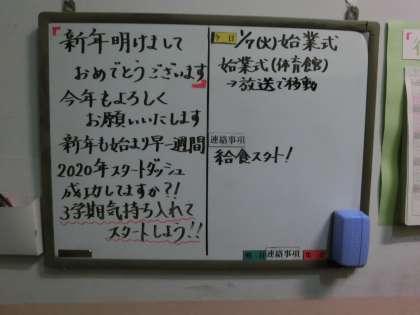 新年明けまして
おめでとうございます
今年もよろしく
お願いいたします
新年も始まり早一週間
2020年スタートダッシュ
成功してますか?!
3学期気持ち入れて
スタートしよう!!
今日 1/7(火)始業式
始業式(体育館)
→放送で移動
連絡事項
給食スタート!
連絡事項